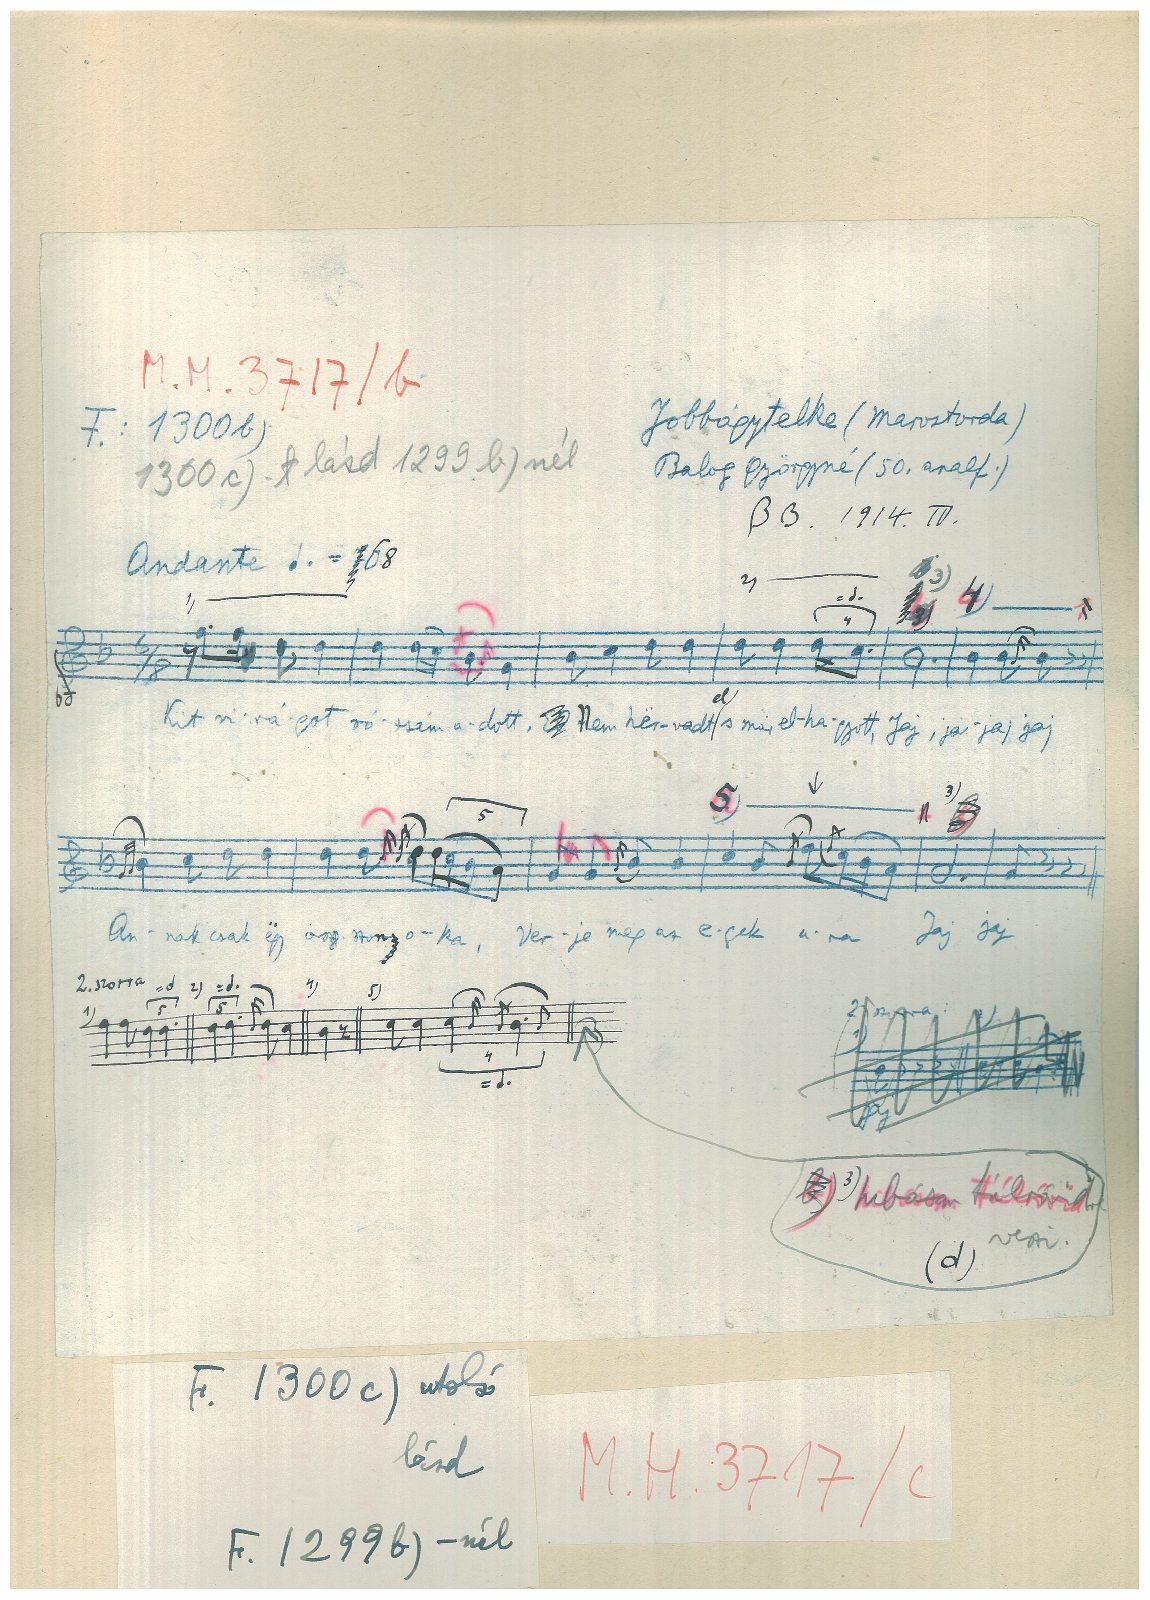 M.H. 3717/b
F.: 1300b)
1300c) lásd 1299b) nél
Jobbágytelke (Marostorda)
Balog Györgyné (50. analf.)
BB. 1914. IV.
Andante = 68
1) 2) 3) 4)
6/8
Kit vi-rá-got ró-zsám a-dott, Nem hër-vadt s már el-ha-gyott, Jaj, ja-jaj jaj
5 5) 3)
An-nak csak ëgy asz-szony o-ka, Ver-je meg az e-gek u-ra Jaj jaj
2. szora
1) 5 2) 5 4) 5)
4
2
jaj
3) hibásan
(d)
F. 1300c) utolsó
lásd
F. 1299b)-nél
M.H. 3717/c